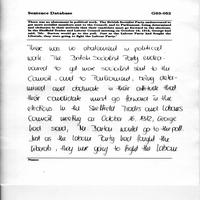 Sentence Database G03-052
There was no abatement in political work. The British Socialist Party endeavoured to
get more socialists sent to the Council and to Parliament. Being determined
and obdurate in their attitude that their candidate must go forward in the elections
in the Sheffield Trades and Labour Council meeting on October 16, 1912, George
had said, The Barton would go to the poll. Just as the Labour Party had fought the
Liberals, they were going to fight the Labour
There was no abatement in political
work. The British Socialist Party endea-
voured to get more socialists sent to the
Council and to Parliament. Being deter-
mined and obdurate in their attitude that
their candidate must go forward in the
elections in the Sheffield Trades and Labour
Council meeting on October 16, 1912, George
had said, The Barton would go to the poll.
Just as the Labour Party had fought the
Liberals, they were going to fight the Labour
Name: